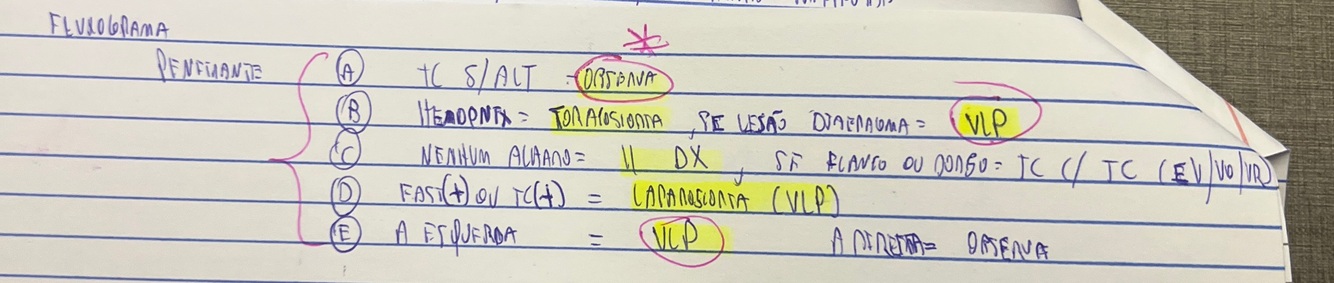 FLUXOGRAMA
PENETRANTE
A TC S/ALT - OBSERVA
B HEMOPNTX = TORACOSCOPIA, SE LESÃO DIAFRAGMA = VLP
C NENHUM ACHADO = LL DX, SE FLANCO OU DORSO = TC C/ TC (EV/VO/VR)
D FAST(+) OU TC(+) = LAPAROSCOPIA (VLP)
E A ESQUERDA = VLP A DIREITA = OBSERVA